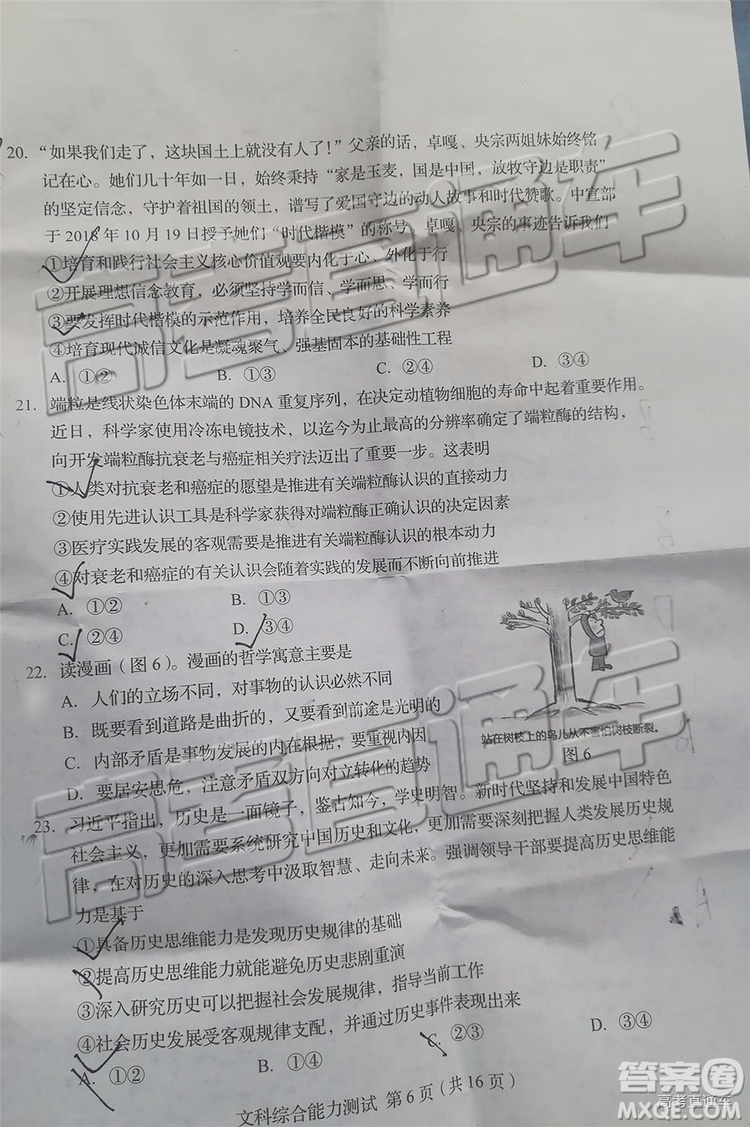 20. “如果我们走了，这块国土上就没有人了！”父亲的话，卓嘎、央宗两姐妹始终铭
记在心。她们几十年如一日，始终秉持“家是玉麦，国是中国，放牧守边是职责”
的坚定信念，守护着祖国的领土，谱写了爱国守边的动人故事和时代赞歌。中宣部
于 2018 年 10 月 19 日授予她们“时代楷模”的称号。卓嘎、央宗的事迹告诉我们
①培育和践行社会主义核心价值观要内化于心、外化于行
②开展理想信念教育，必须坚持学而信、学而思、学而行
③要发挥时代楷模的示范作用，培养全民良好的科学素养
④培育现代诚信文化是凝魂聚气、强基固本的基础性工程
A. ①② B. ①③ C. ②④ D. ③④
21. 端粒是线状染色体末端的 DNA 重复序列，在决定动植物细胞的寿命中起着重要作用。
近日，科学家使用冷冻电镜技术，以迄今为止最高的分辨率确定了端粒酶的结构，
向开发端粒酶抗衰老与癌症相关疗法迈出了重要一步。这表明
①人类对抗衰老和癌症的愿望是推进有关端粒酶认识的直接动力
②使用先进认识工具是科学家获得对端粒酶正确认识的决定因素
③医疗实践发展的客观需要是推进有关端粒酶认识的根本动力
④对衰老和癌症的有关认识会随着实践的发展而不断向前推进
A. ①② B. ①③
C. ②④ D. ③④
22. 读漫画（图 6）。漫画的哲学寓意主要是
A. 人们的立场不同，对事物的认识必然不同
B. 既要看到道路是曲折的，又要看到前途是光明的
C. 内部矛盾是事物发展的内在根据，要重视内因
D. 要居安思危，注意矛盾双方向对立转化的趋势
站在树枝上的鸟儿从不害怕树枝断裂。
图 6
23. 习近平指出，历史是一面镜子，鉴古知今，学史明智。新时代坚持和发展中国特色
社会主义，更加需要系统研究中国历史和文化，更加需要深刻把握人类发展历史规
律，在对历史的深入思考中汲取智慧、走向未来。强调领导干部要提高历史思维能
力是基于
①具备历史思维能力是发现历史规律的基础
②提高历史思维能力就能避免历史悲剧重演
③深入研究历史可以把握社会发展规律，指导当前工作
④社会历史发展受客观规律支配，并通过历史事件表现出来
A. ①② B. ①④ C. ②③ D. ③④
文科综合能力测试 第 6 页（共 16 页）
高考直通车
高考直通车
答案圈
高考直通车
MXQE.COM